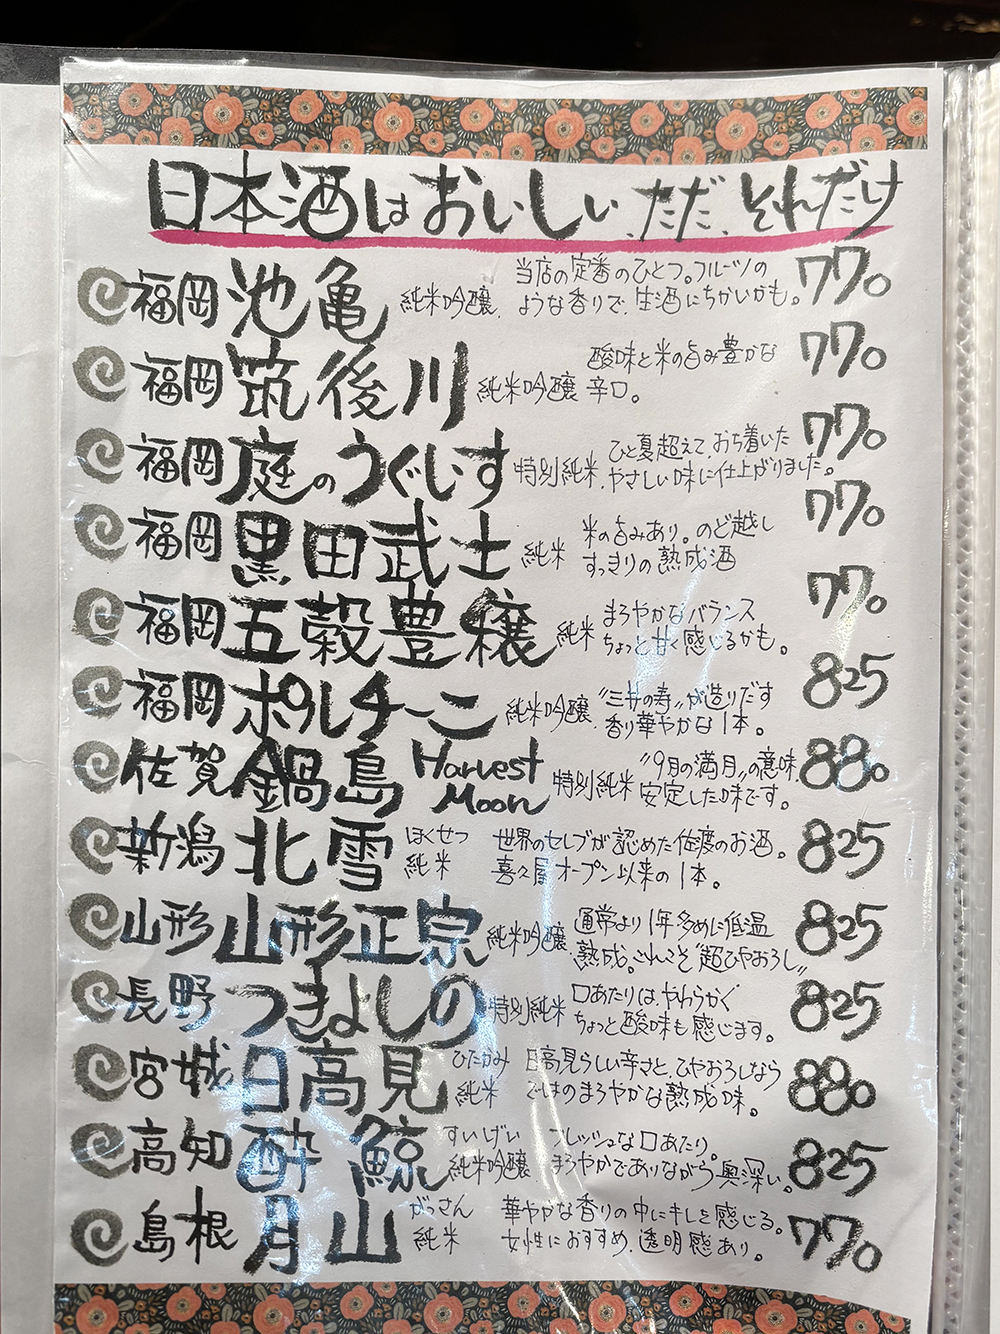 日本酒はおいしい、ただ、それだけ
福岡 池亀 純米吟醸 当店の定番のひとつ。フルーツの
ような香りで、生酒にちかいかも。 770
福岡 筑後川 純米吟醸 酸味と米の旨み豊かな
辛口。 770
福岡 庭のうぐいす 特別純米 ひと夏超えて、おち着いた
やさしい味に仕上がりました。 770
福岡 黒田武士 純米 米の旨みあり。のど越し
すっきりの熟成酒 770
福岡 五穀豊穣 純米 まろやかなバランス
ちょっと甘く感じるかも。 770
福岡 ポルチーニ 純米吟醸 "三井の寿"が造りだす
香り華やかな1本。 825
佐賀 鍋島 Harvest Moon 特別純米 "9月の満月"の意味
安定した味です。 880
新潟 北雪 ほくせつ 純米 世界のセレブが認めた佐渡のお酒。
喜久屋オープン以来の1本。 825
山形 山形正宗 純米吟醸 通常より1年多めに低温
熟成。これこそ"超ひやおろし" 825
長野 つきよしの 特別純米 口あたりは、やわらかく
ちょっと酸味も感じます。 825
宮城 日高見 ひたかみ 純米 日高見らしい辛さと、ひやおろしなら
ではのまろやかな熟成味。 880
高知 酔鯨 すいげい 純米吟醸 フレッシュな口あたり。
まろやかでありながら、奥深い。 825
島根 月山 がっさん 純米 華やかな香りの中にキレを感じる。
女性におすすめ、透明感あり。 770